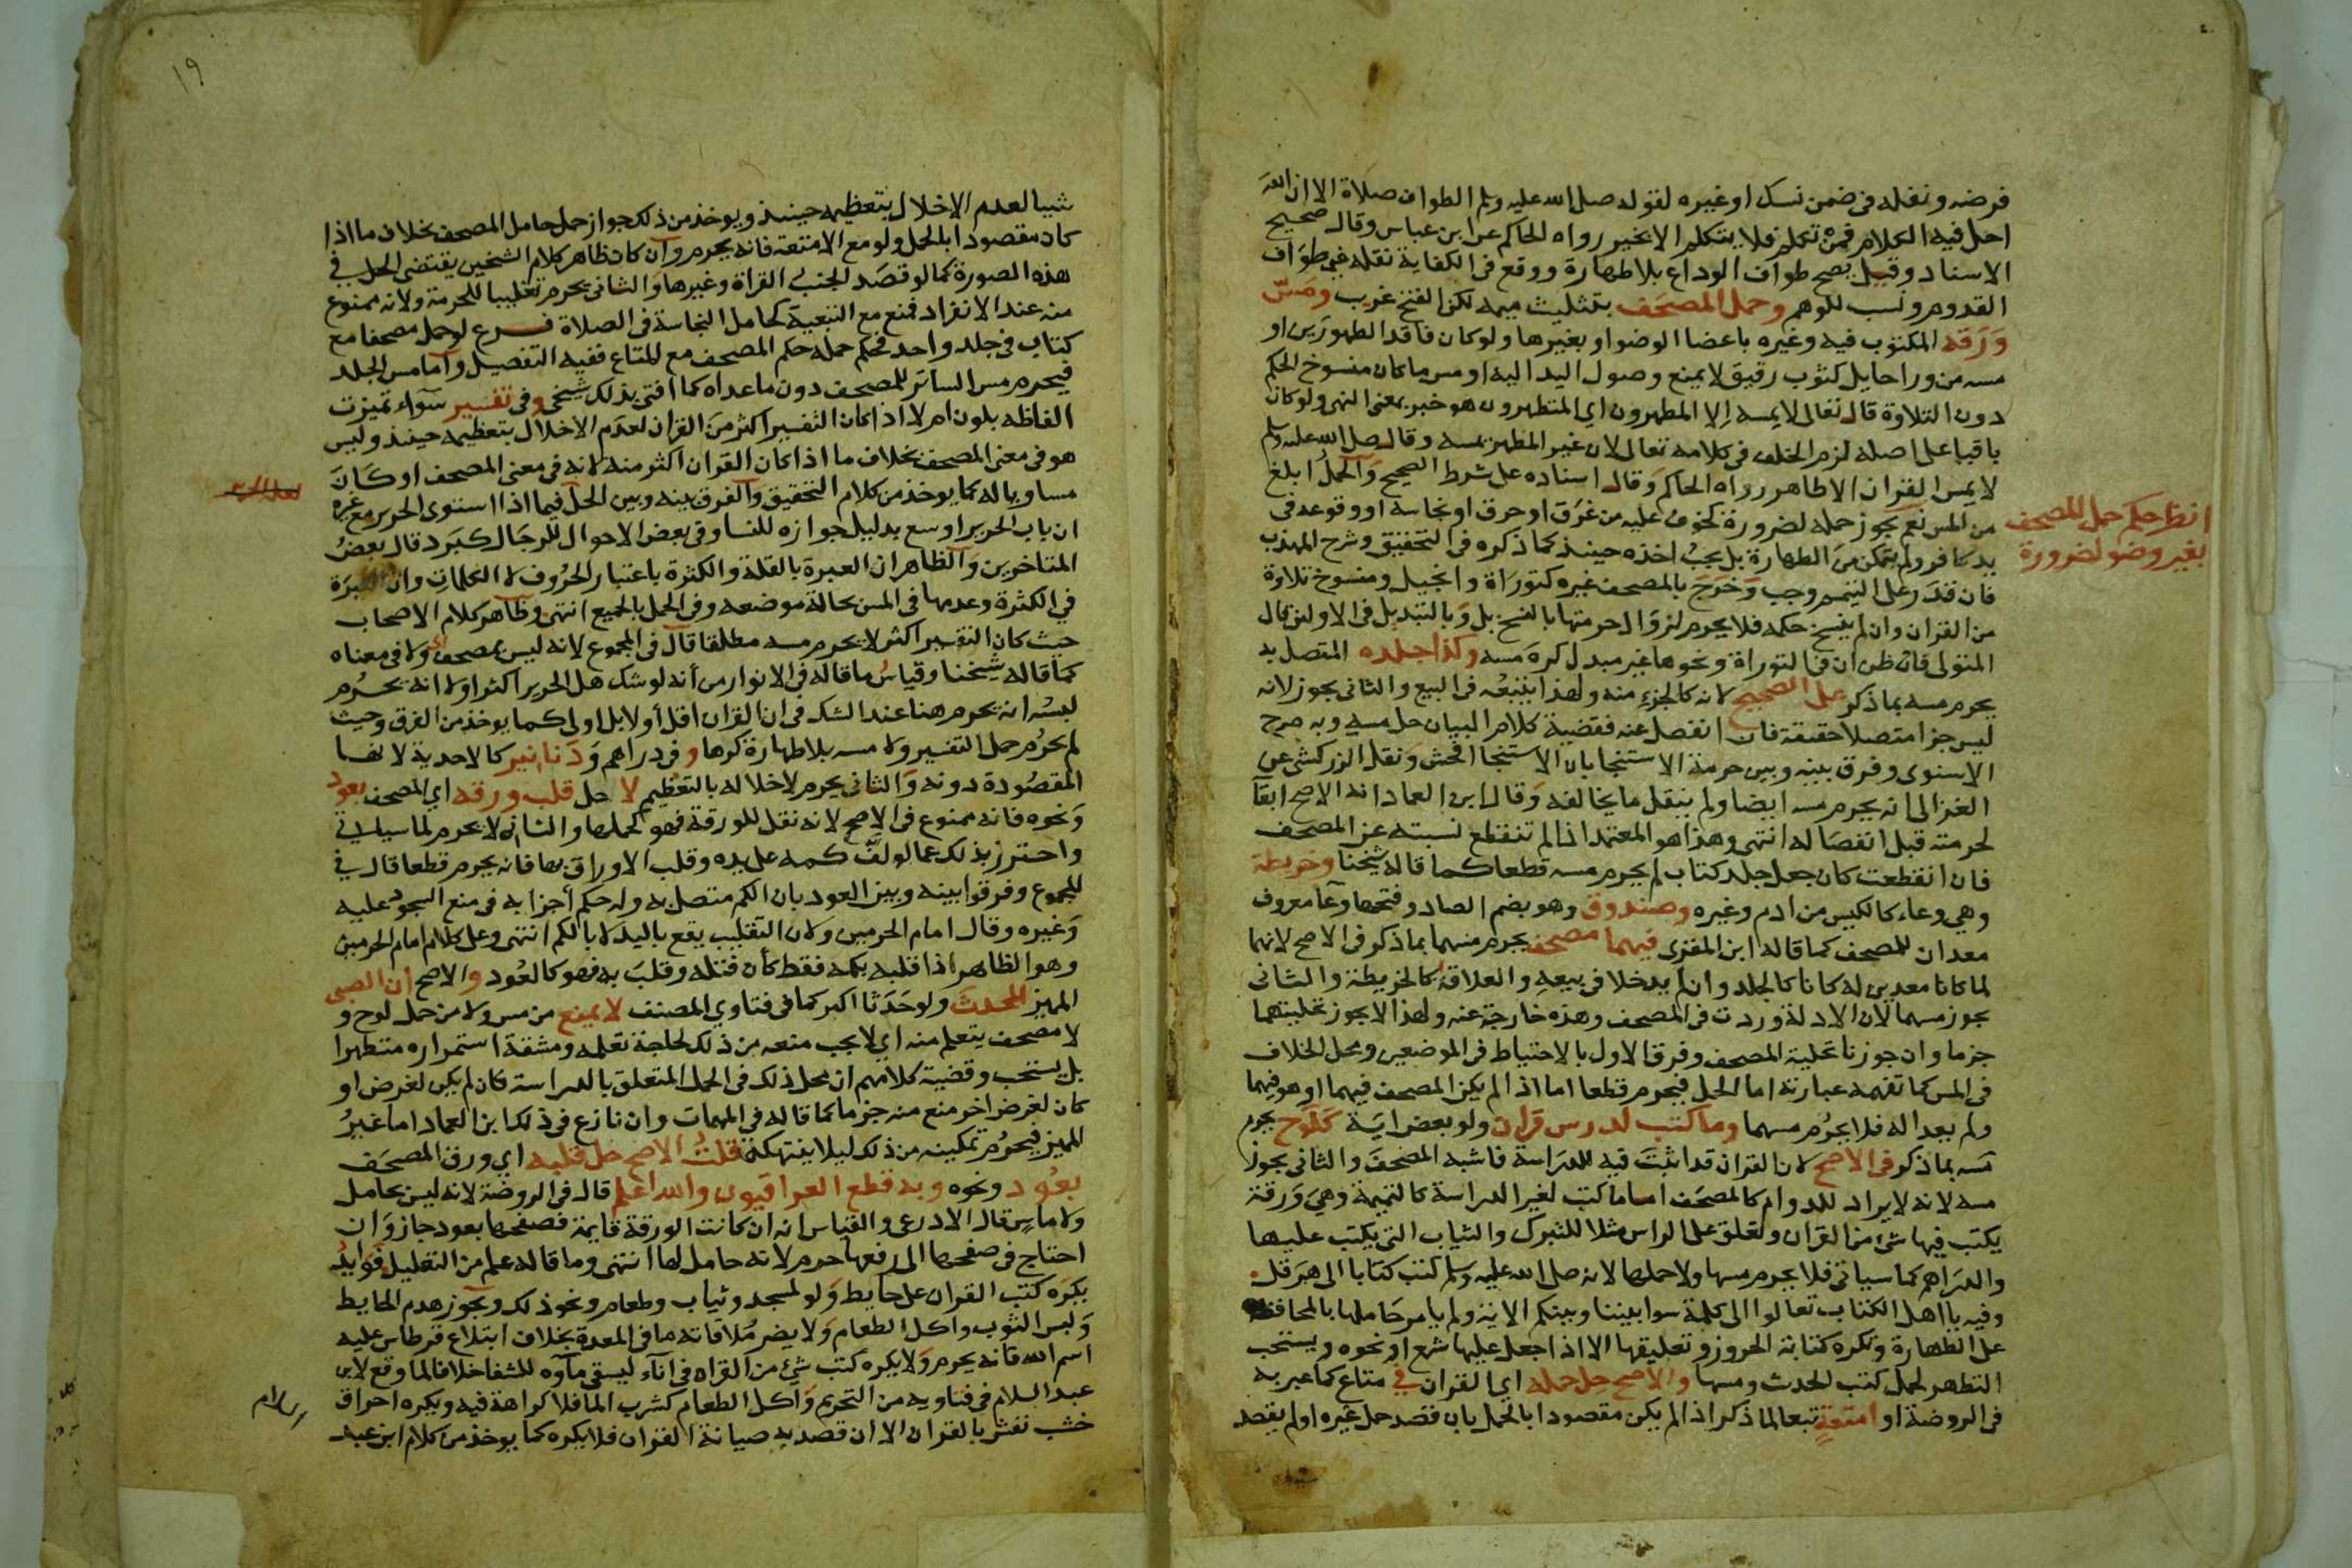 فرضه ونفله في ضمن نسك او غيره لقوله صلى الله عليه وسلم الطواف صلاة الا ان الله
احل فيه الكلام فمن تكلم فلا يتكلم الا بخير رواه الحاكم عن ابن عباس وقال صحيح
الاسناد وقيل يصح طواف الوداع بلا طهارة ووقع في الكفاية نقله في طواف
القدوم ونسب للوهم وحمل المصحف بتثليث ميمه لكن الفتح غريب ومسّ
ورقه المكتوب فيه وغيره باعضا الوضو او بغيرها ولو كان فاقدا لطهورين او
مسه من ورا حايل كثوب رقيق لا يمنع وصول اليد اليه او مس ما كان منسوخ الحكم
دون التلاوة قال تعالى لا يمسه الا المطهرون اي المتطهرون هو خبر بمعنى النهي ولو كان
باقيا على اصله لزم الخلف في كلامه تعالى لان غير المطهر يمسه وقال صلى الله عليه وسلم
لا يمس القران الا طاهر رواه الحاكم وقال اسناده على شرط الصحيح والحمل ابلغ
من المس نعم يجوز حمله لضرورة كخوف عليه من غرق او حرق او نجاسة او وقوعه في
يد كافر ولم يتمكن من الطهارة بل يجب اخذه حينيذ كما ذكره في التحقيق وشرح المهذب
فان قدر على التيمم وجب وخرج بالمصحف غيره كتوراة وانجيل ومنسوخ تلاوة
من القران وان لم ينسخ حكمه فلا يحرم لزوال حرمتها بالنسخ بل وبالتبديل في الاولين قال
المتولي فان ظن ان في التوراة ونحوها غير مبدل كره مسه وكذا جلده المتصل به
يحرم مسه بما ذكر على الصحيح لانه كالجزء منه ولهذا يتبعه في البيع والثاني يجوز لانه
ليس جزا متصلا حقيقة فان انفصل عنه فقضية كلام البيان حل مسه وبه صرح
الاسنوي وفرق بينه وبين حرمة الاستنجا بان الاستنجا افحش ونقل الزركشي عن
الغزالي انه يحرم مسه ايضا ولم ينقل ما يخالفه وقال ابن العماد انه الاصح ابقآ
لحرمته قبل انفصاله انتهى وهذا هو المعتمد اذا لم تنقطع نسبته عن المصحف
فان انقطعت كان جعل جلد كتاب لم يحرم مسه قطعا كما قاله شيخنا وخريطة
وهي وعاء كالكيس من ادم وغيره وصندوق وهو بضم الصاد وفتحها وعآ معروف
معدان للمصحف كما قاله ابن المقري فيهما مصحف يحرم مسهما بما ذكر في الاصح لانهما
لما كانا معدين له كانا كالجلد وان لم يدخلا في بيعه والعلاقة كالخريطة والثاني
يجوز مسهما لان الادلة وردت في المصحف وهذه خارجة عنه ولهذا لا يجوز تحليتهما
جزما وان جوزنا تحلية المصحف وفرق الاول بالاحتياط في الموضعين ومحل الخلاف
في المس كما تفهمه عبارته اما الحمل فيحرم قطعا اما اذا لم يكن المصحف فيهما او هو فيهما
ولم يعدا له فلا يحرم مسهما وما كتب لدرس قران ولو بعض اية كلوح يحرم
مسه بما ذكر في الاصح لان القران قد اثبت فيه للدراسة فاشبه المصحف والثاني يجوز
مسه لانه لا يراد للدوام كالمصحف اما ما كتب لغير الدراسة كالتميمة وهي ورقة
يكتب فيها شئ من القران وتعلق على الراس مثلا للتبرك والثياب التي يكتب عليها
والدراهم كما سياتي فلا يحرم مسها ولا حملها لانه صلى الله عليه وسلم كتب كتابا الى هرقل
وفيه يا اهل الكتاب تعالوا الى كلمة سوا بيننا وبينكم الاية ولم يامر حاملها بالمحافظة
على الطهارة وتكره كتابة الحروز وتعليقها الا اذا جعل عليها شمع او نحوه ويستحب
التطهر لحمل كتب الحدث ومسها والاصح حل حمله اي القران في متاع كما عبر به
في الروضة او امتعة تبعا لما ذكر اذا لم يكن مقصودا بالحمل بان قصد حمل غيره او لم يقصد
انظر حكم حمل المصحف
بغير وضو لضرورة
١٩
شيا لعدم الاخلال بتعظيمه حينيذ ويوخذ من ذلك جواز حمل حامل المصحف بخلاف ما اذا
كان مقصودا بالحمل ولو مع الامتعة فانه يحرم وان كان ظاهر كلام الشخين يقتضي الحل في
هذه الصورة كما لو قصد الجنب القراة وغيرها والثاني يحرم تغليبا للحرمة ولانه ممنوع
منه عند الانفراد فمنع مع التبعية كحامل النجاسة في الصلاة فرع لو حمل مصحفا مع
كتاب في جلد واحد فحكم حمله حكم المصحف مع المتاع ففيه التفصيل واما مس الجلد
فيحرم مس الساتر للمصحف دون ما عداه كما افتى بذلك شيخي وفي تفسير سوآء تميزت
الفاظه بلون ام لا اذا كان التفسير اكثر من القران لعدم الاخلال بتعظيمه حينيذ وليس
هو في معنى المصحف بخلاف ما اذا كان القران اكثر منه لانه في معنى المصحف او كان
مساويا له كما يوخذ من كلام التحقيق والفرق بينه وبين الحل فيما اذا استوى الحرير مع غيره
ان باب الحرير اوسع بدليل جوازه للنسا وفي بعض الاحوال للرجال كبرد قال بعض
المتاخرين والظاهر ان العبرة بالقلة والكثرة باعتبار الحروف لا الكلمات وان العبرة
في الكثرة وعدمها في المس بحالة موضعه وفي الحمل بالجميع انتهى وظاهر كلام الاصحاب
حيث كان التفسير اكثر لا يحرم مسه مطلقا قال في المجموع لانه ليس بمصحف اي ولا في معناه
كما قاله شيخنا وقياس ما قاله في الانوار من أنه لو شك هل الحرير اكثر او لا انه يحرم
لبسه انه يحرم هنا عند الشك في ان القران اقل أو لا بل اولى كما يوخذ من الفرق وحيث
لم يحرم حمل التفسير ولا مسه بلا طهارة كرها وفي دراهم ودنانير كالاحدية لانها
المقصودة دونه والثاني يحرم لاخلاله بالتعظيم لا حل قلب ورقه اي المصحف بعود
ونحوه فانه ممنوع في الاصح لانه نقل للورقة فهو كحملها والثاني لا يحرم لما سياتي
واحترز بذلك عما لو لفّ كمه على يده وقلب الاوراق بها فانه يحرم قطعا قال في
المجموع وفرقوا بينه وبين العود بان الكم متصل به وله حكم أجزايه في منع السجود عليه
وغيره وقال امام الحرمين ولان التقليب يقع باليد لا بالكم انتهى وعلى كلام امام الحرمين
وهو الظاهر اذا قلبه بكمه فقط كأن فتله وقلب به فهو كالعود والاصح ان الصبي
المميز المحدث ولو حدثا اكبر كما في فتاوي المصنف لا يمنع من مس ولا من حمل لوح و
لا مصحف يتعلم منه اي لا يجب منعه من ذلك لحاجة تعلمه ومشقة استمراره متطهرا
بل يستحب وقضية كلامهم ان محل ذلك في الحمل المتعلق بالدراسة فان لم يكن لغرض او
كان لغرض اخر منع منه جزما كما قاله في المهمات وان نازع في ذلك ابن العماد اما غير
المميز فيحرم تمكينه من ذلك ليلا ينتهكه قلت الاصح حل قلبه اي ورق المصحف
بعود ونحوه وبه قطع العراقيون والله اعلم قال في الروضة لانه ليس بحامل
ولا ماس قال الاذرعي والقياس انه ان كانت الورقة قايمة فصفحها بعود جاز وان
احتاج في صفحها الى رفعها حرم لانه حامل لها انتهى وما قاله علم من التعليل فوايد
يكره كتب القران على حايط ولو لمسجد وثياب وطعام ونحو ذلك ويجوز هدم الحايط
ولبس الثوب واكل الطعام ولا يضر ملاقاته ما في المعدة بخلاف ابتلاع قرطاس عليه
اسم الله فانه يحرم ولا يكره كتب شئ من القران في انآء ليسقى مآوه للشفا خلافا لما وقع لابن
عبد السلام في فتاويه من التحريم واكل الطعام كشرب الما فلا كراهة فيه ويكره احراق
خشب نقش بالقران الا ان قصد به صيانة القران فلا يكره كما يوخذ من كلام ابن عبد
السلام